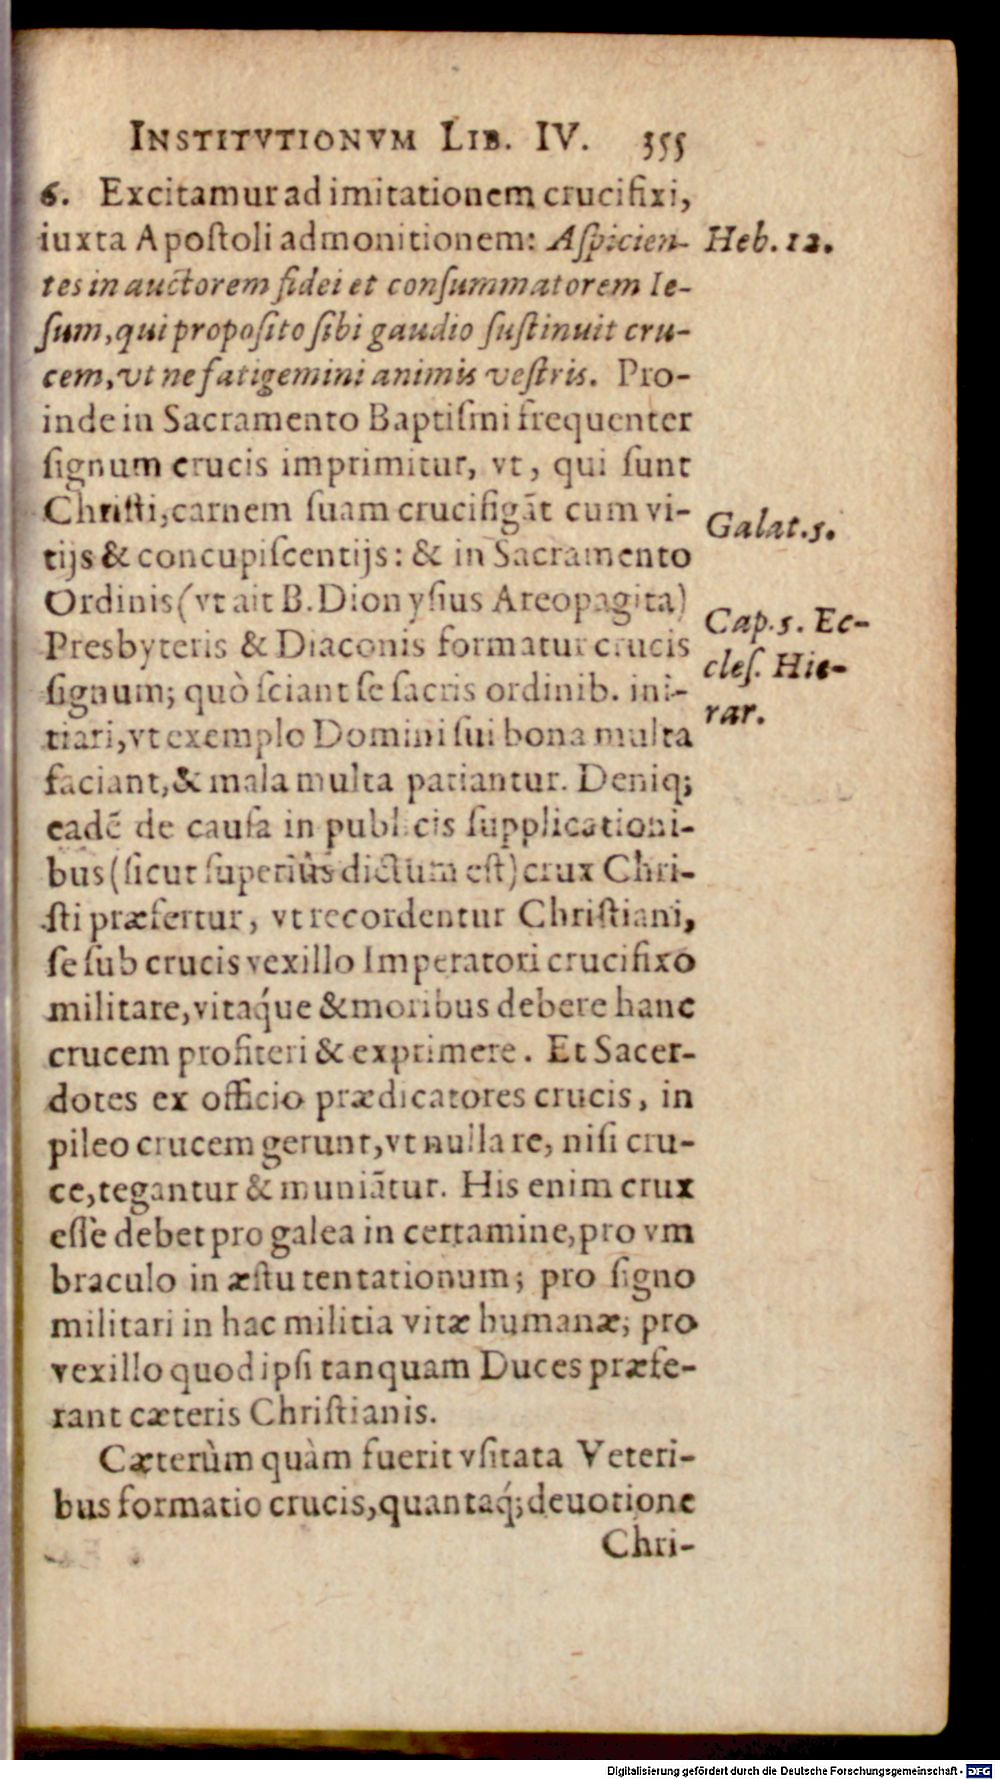 INSTITVTIONVM LIB. IV. 355
6. Excitamur ad imitationem crucifixi,
iuxta Apoſtoli admonitionem: Aſpicien-
Heb. 12.
tes in auctorem fidei et conſummatorem Ie-
ſum, qui propoſito ſibi gaudio ſuſtinuit cru-
cem, vt ne fatigemini animis veſtris. Pro-
inde in Sacramento Baptiſmi frequenter
ſignum crucis imprimitur, vt, qui ſunt
Chriſti, carnem ſuam crucifigãt cum vi-
Galat. 5.
tijs & concupiſcentijs: & in Sacramento
Ordinis (vt ait B. Dionyſius Areopagita)
Cap. 5. Ec-
Presbyteris & Diaconis formatur crucis
cleſ. Hie-
ſignum; quò ſciant ſe ſacris ordinib. ini-
rar.
tiari, vt exemplo Domini ſui bona multa
faciant, & mala multa patiantur. Deniq;
eadẽ de cauſa in publicis ſupplicationi-
bus (ſicut ſuperiùs dictum eſt) crux Chri-
ſti præfertur, vt recordentur Chriſtiani,
ſe ſub crucis vexillo Imperatori crucifixo
militare, vitaq́ue & moribus debere hanc
crucem profiteri & exprimere. Et Sacer-
dotes ex officio prædicatores crucis, in
pileo crucem gerunt, vt nulla re, niſi cru-
ce, tegantur & muniãtur. His enim crux
eſſe debet pro galea in certamine, pro vm
braculo in æſtu tentationum; pro ſigno
militari in hac militia vitæ humanæ; pro
vexillo quod ipſi tanquam Duces præfe-
rant cæteris Chriſtianis.
Cæterùm quàm fuerit vſitata Veteri-
bus formatio crucis, quantaq́; deuotione
Chri-
Digitalisierung gefördert durch die Deutsche Forschungsgemeinschaft - DFG